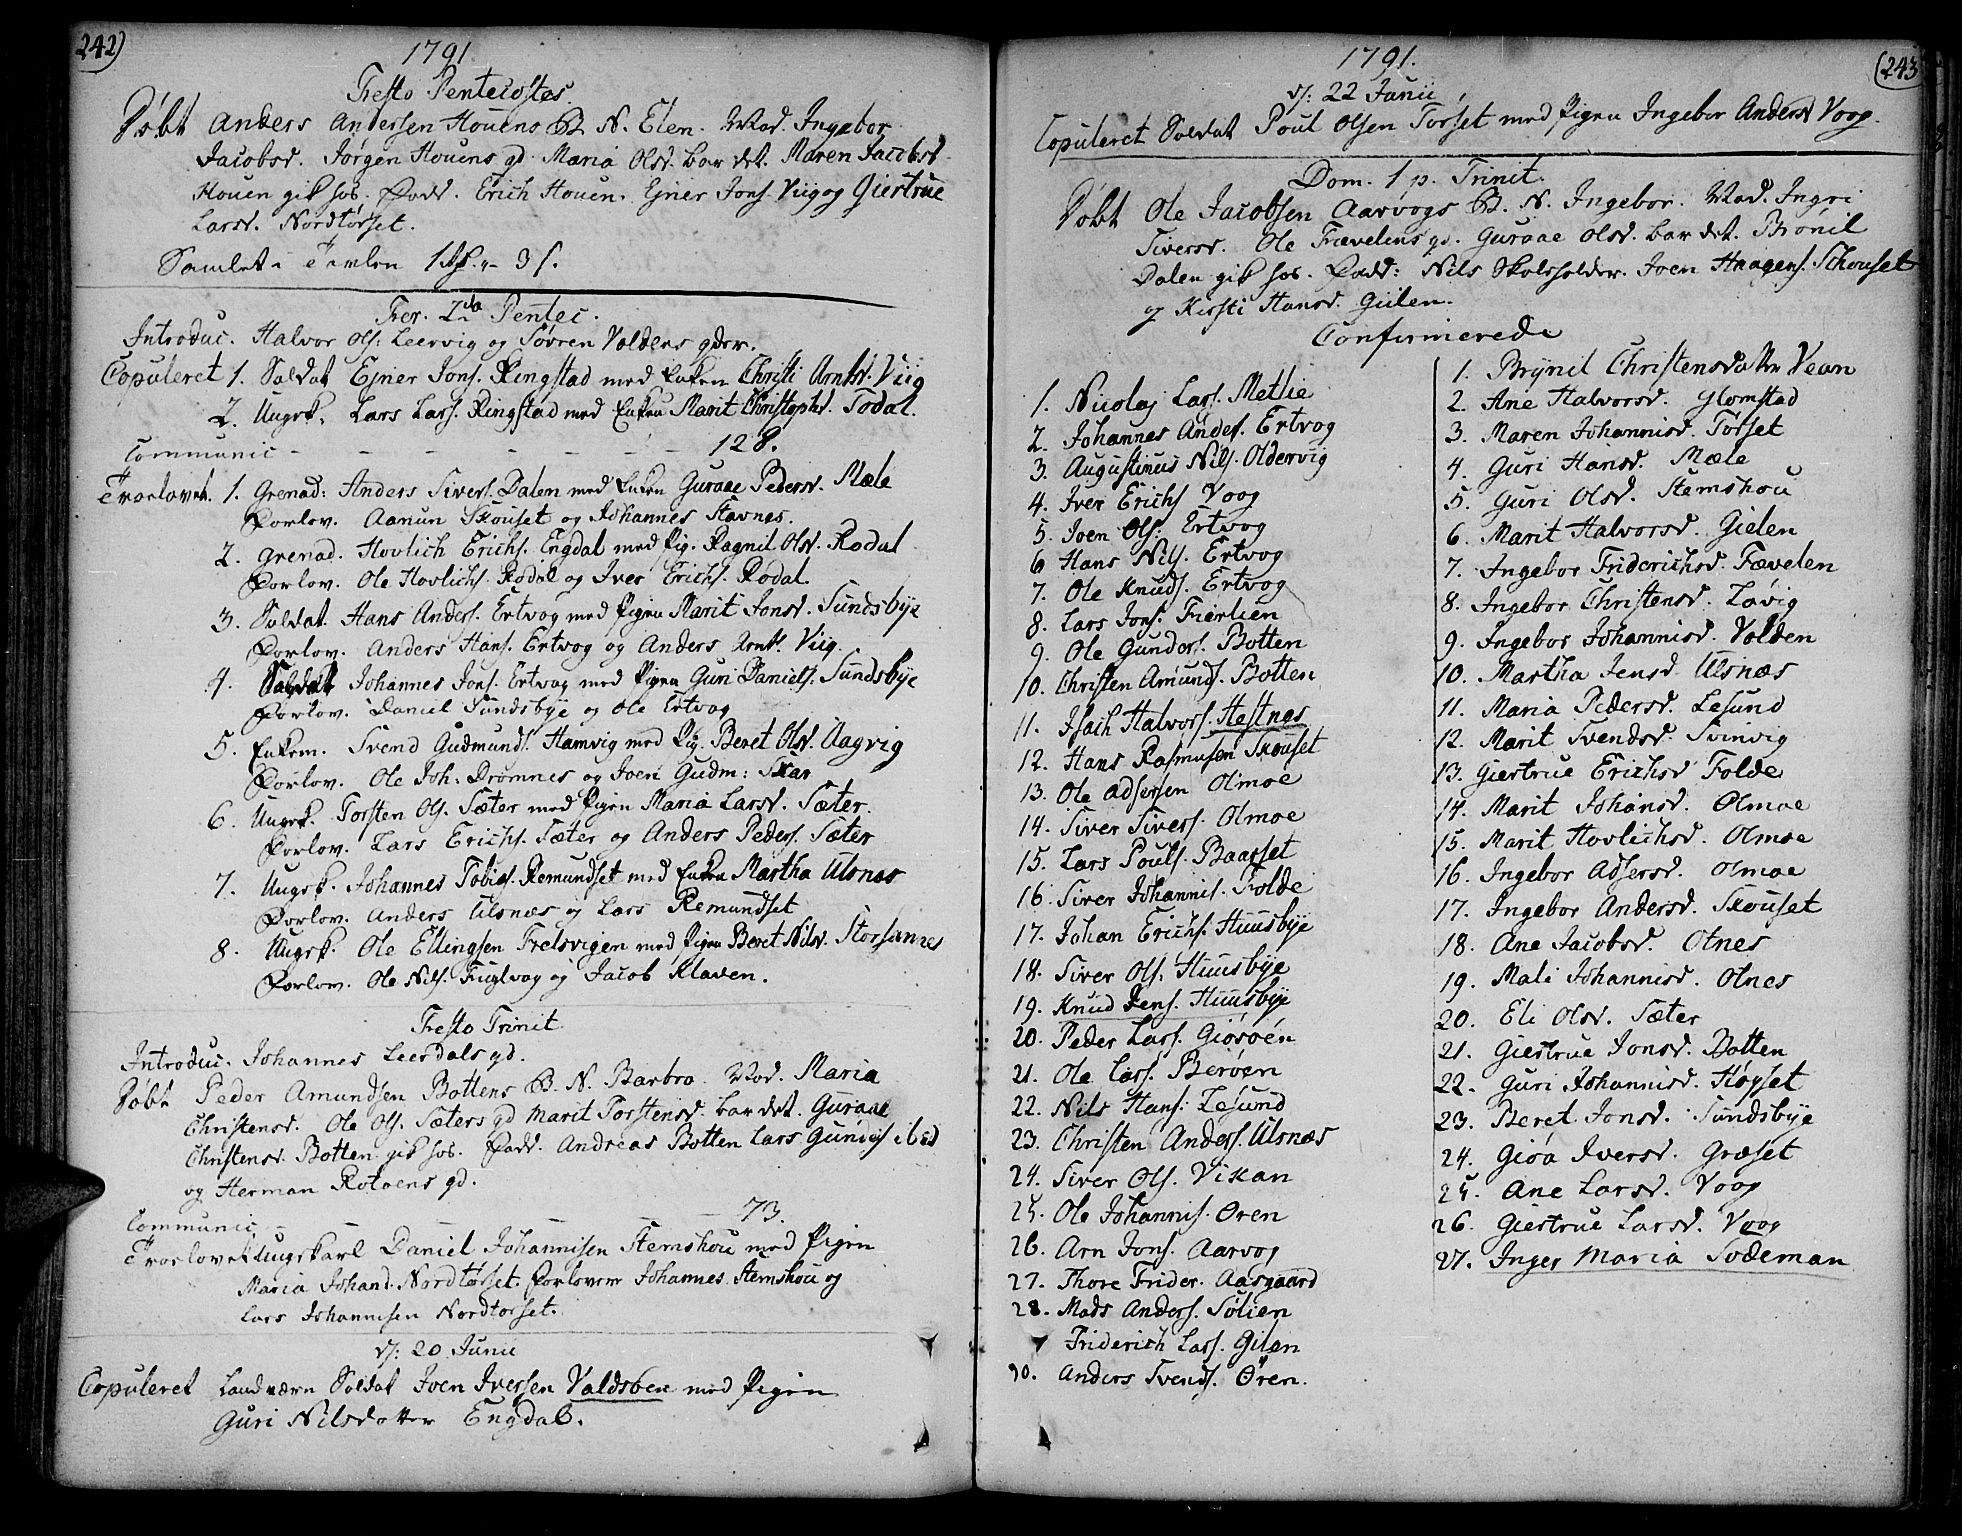 242)
1791
Festo Pentecostes.
Døbt Anders Andersen Houens B. N. Elen. Mod. Ingebor
Jacobsd. Jørgen Houens gd. Maria Olsd. bar det. Maren Jacobsd.
Houen gik hos. Fadd. Erich Houen. Ejner Jons. Viig og Giertrue
Larsd. Nordtørset.
Samlet i Tavlen 1 - 3 s.
Fer. 2da Pentec.
Introduc. Halvor Ols: Leervig og Søvren Valdens qdr.
Copuleret 1. Soldat Ejner Jons. Ringstad med Enken Christi Arntsd. Viig
2. Ungk. Lars Lars. Ringstad med Enken Marit Christophd. Todal.
Communic - - - - - - - 128.
Trorlovet. 1. Grenad: Anders Sivers. Dalen med Enken Guraae Pedersd. Mæle
Forlov. Aanun Skouset og Johannes Stavnes.
2. Grenad. Hovlich Erichs. Engdal med Pig. Ragnil Olsd. Rodal
Forlov. Ole Hovlichs. Rodal og Iver Erichs. Rodal.
3. Soldat Hans Anders. Ertvog med Pigen Marit Jonsd. Sundsbye
Forlov. Anders Hans. Ertvog og Anders Arnts. Viig.
4. Soldat Johannes Jons. Ertvog med Pigen Guri Daniels: Sundsbye
Forlov. Daniel Sundsbye og Ole Ertvog
5. Enkem. Svend Gudmunds. Hamvig med Pig. Beret Olsd. Aagvig
Forlov. Ole Joh: Dromnes og Joen Gudm: Skar
6. Ungk. Torsten Ols. Sæter med Pigen Maria Larsd. Sæter.
Forlov. Lars Erichs. Sæter og Anders Peders. Sæter
7. Ungk. Johannes Tobias. Remundset med Enken Martha Ulsnæs
Forlov. Anders Ulsnæs og Lars Remundset
8. Ungk. Ole Ellingsen Frelsvigen med Pigen Beret Nilsd. Storsannes
Forlov. Ole Nils. Fuglvog og Jacob Klaven.
Festo Trinit.
Introduc. Johannes Leerdals gd.
Døbt Peder Amundsen Bottens B. N. Barbro. Mod. Maria
Christensd. Ole Ols. Sæters gd Marit Torstensd. bar det. Guraae
Christensd. Botten gik hos. Fadd. Andreas Botten Lars Gunders
og Herman Rotaens gd.
Communic - - - - - - 73.
Trorlovet Ungkarl Daniel Johannisen Stemshou med Pigen
Maria Johand. Nordtørset. Forlovere Johannes Stemshou og
Lars Johannisen Nordtørset.
d: 20 Junii
Copuleret Landværn Soldat Joen Iversen Valdsøen med Pigen
Guri Nilsdatter Engdal.
1791.
(243
d: 22 Junii
Copuleret Soldat Poul Olsen Tørset med Pigen Ingebor Andersd Voog.
Dom. 1 p. Trinit.
Døbt Ole Jacobsen Aarvogs B. N. Ingebor. Mod. Ingri
Siversd. Ole Fævelens gd. Guraae Olsd. bar det. Brønil
Dalen gik hos. Fadd: Nils Skoleholder. Joen Haagens. Schouset
og Kirsti Hansd. Gielen.
Confirmerede
1. Nicolaj Lars. Methie
2. Johannes Anders. Ertvog
3. Augustinus Nils. Oldervig
4. Iver Erichs Voog
5. Joen Ols: Ertvog
6 Hans Nils. Ertvog
7. Ole Knuds. Ertvog
8. Lars Jons. Fierlien
9. Ole Gunders. Botten
10. Christen Amunds. Botten
11. Isach Halvors. Hestnes
12. Hans Rasmusen Skouset
13. Ole Adsersen Olmoe
14. Siver Sivers. Olmoe
15. Lars Pouls. Baarset
16. Siver Johannis. Folde
17. Johan Erichs. Huusbye
18. Siver Ols. Huusbye
19. Knud Jens. Huusbye
20. Peder Lars. Giøsøen
21. Ole Lars. Berøen
22. Nils Hans: Lesund
23. Christen Anders. Ulsnæs
24. Siver Ols. Vikan
25. Ole Johannis. Øren
26. Arn Jons. Aarvog
27. Thore Frider. Aasgaard
28. Mads Anders. Sølien
Friderich Lars. Gilen
30. Anders Svends. Øren.
1. Brynil Christensdatter Vean
2. Ane Halvorsd. Glomstad
3. Maren Johannisd. Tørset
4. Guri Hansd. Mæle
5. Guri Olsd. Stemshou
6. Marit Halvorsd. Gielen
7. Ingebor Friderichsd. Fævelen
8. Ingebor Christensd. Løvig
9. Ingebor Johannisd. Valden
10. Martha Jensd Ulsnæs
11. Maria Pedersd. Lesund
12. Marit Svendsd. Svinvig
13. Giertrue Erichsd Folde
14. Marit Johansd. Olmoe
15. Marit Hovlichsd. Olmoe
16. Ingebor Adsersd. Olmoe
17. Ingebor Andersd. Skouset
18. Ane Jacobsd. Otnes
19. Mali Johannisd. Otnes
20. Eli Olsd. Sæter
21. Giertrue Jonsd. Botten
22. Guri Johannisd. Høyset
23. Beret Jonsd. Sundsbye
24. Giøa Iversd. Græset
25. Ane Larsd. Voog
26. Giertrue Larsd. Voog
27. Inger Maria Sodeman